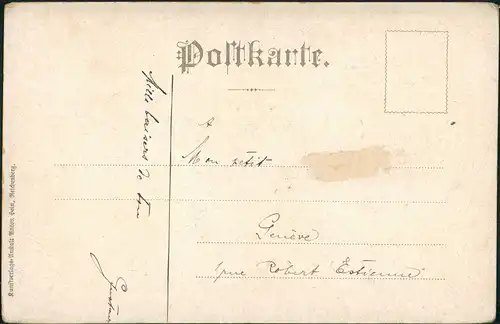 Postkarte.
Mille baisers de ton
Gustave
A
Mon petit
Genève
rue Robert Estienne
Kunstverlags-Anstalt Anton Hein, Reichenberg.